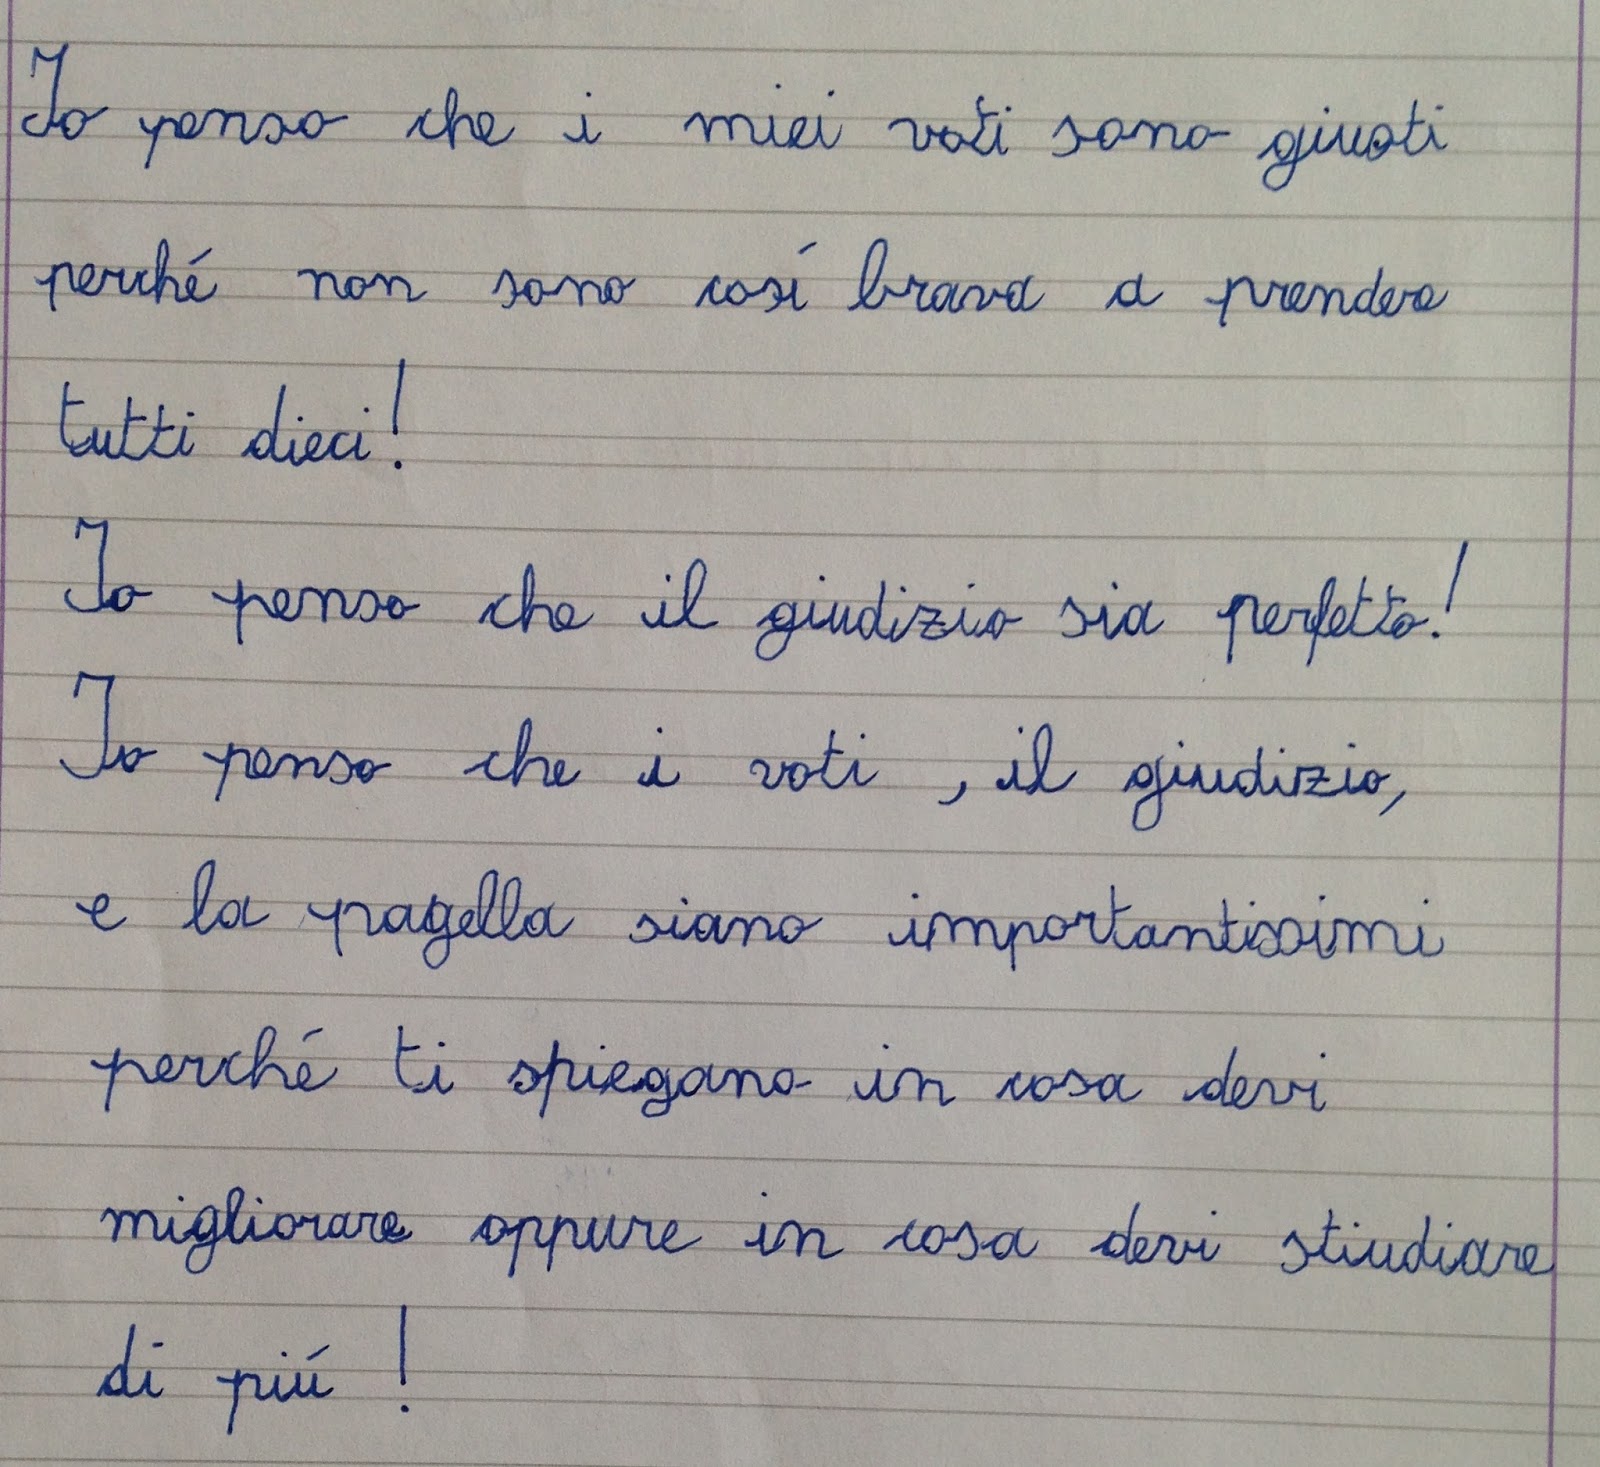 Io penso che i miei voti sono giusti
perché non sono cosí brava a prendere
tutti dieci!
Io penso che il giudizio sia perfetto!
Io penso che i voti , il giudizio,
e la pagella siano importantissimi
perché ti spiegano in cosa devi
migliorare oppure in cosa devi stiudiare
di piú !